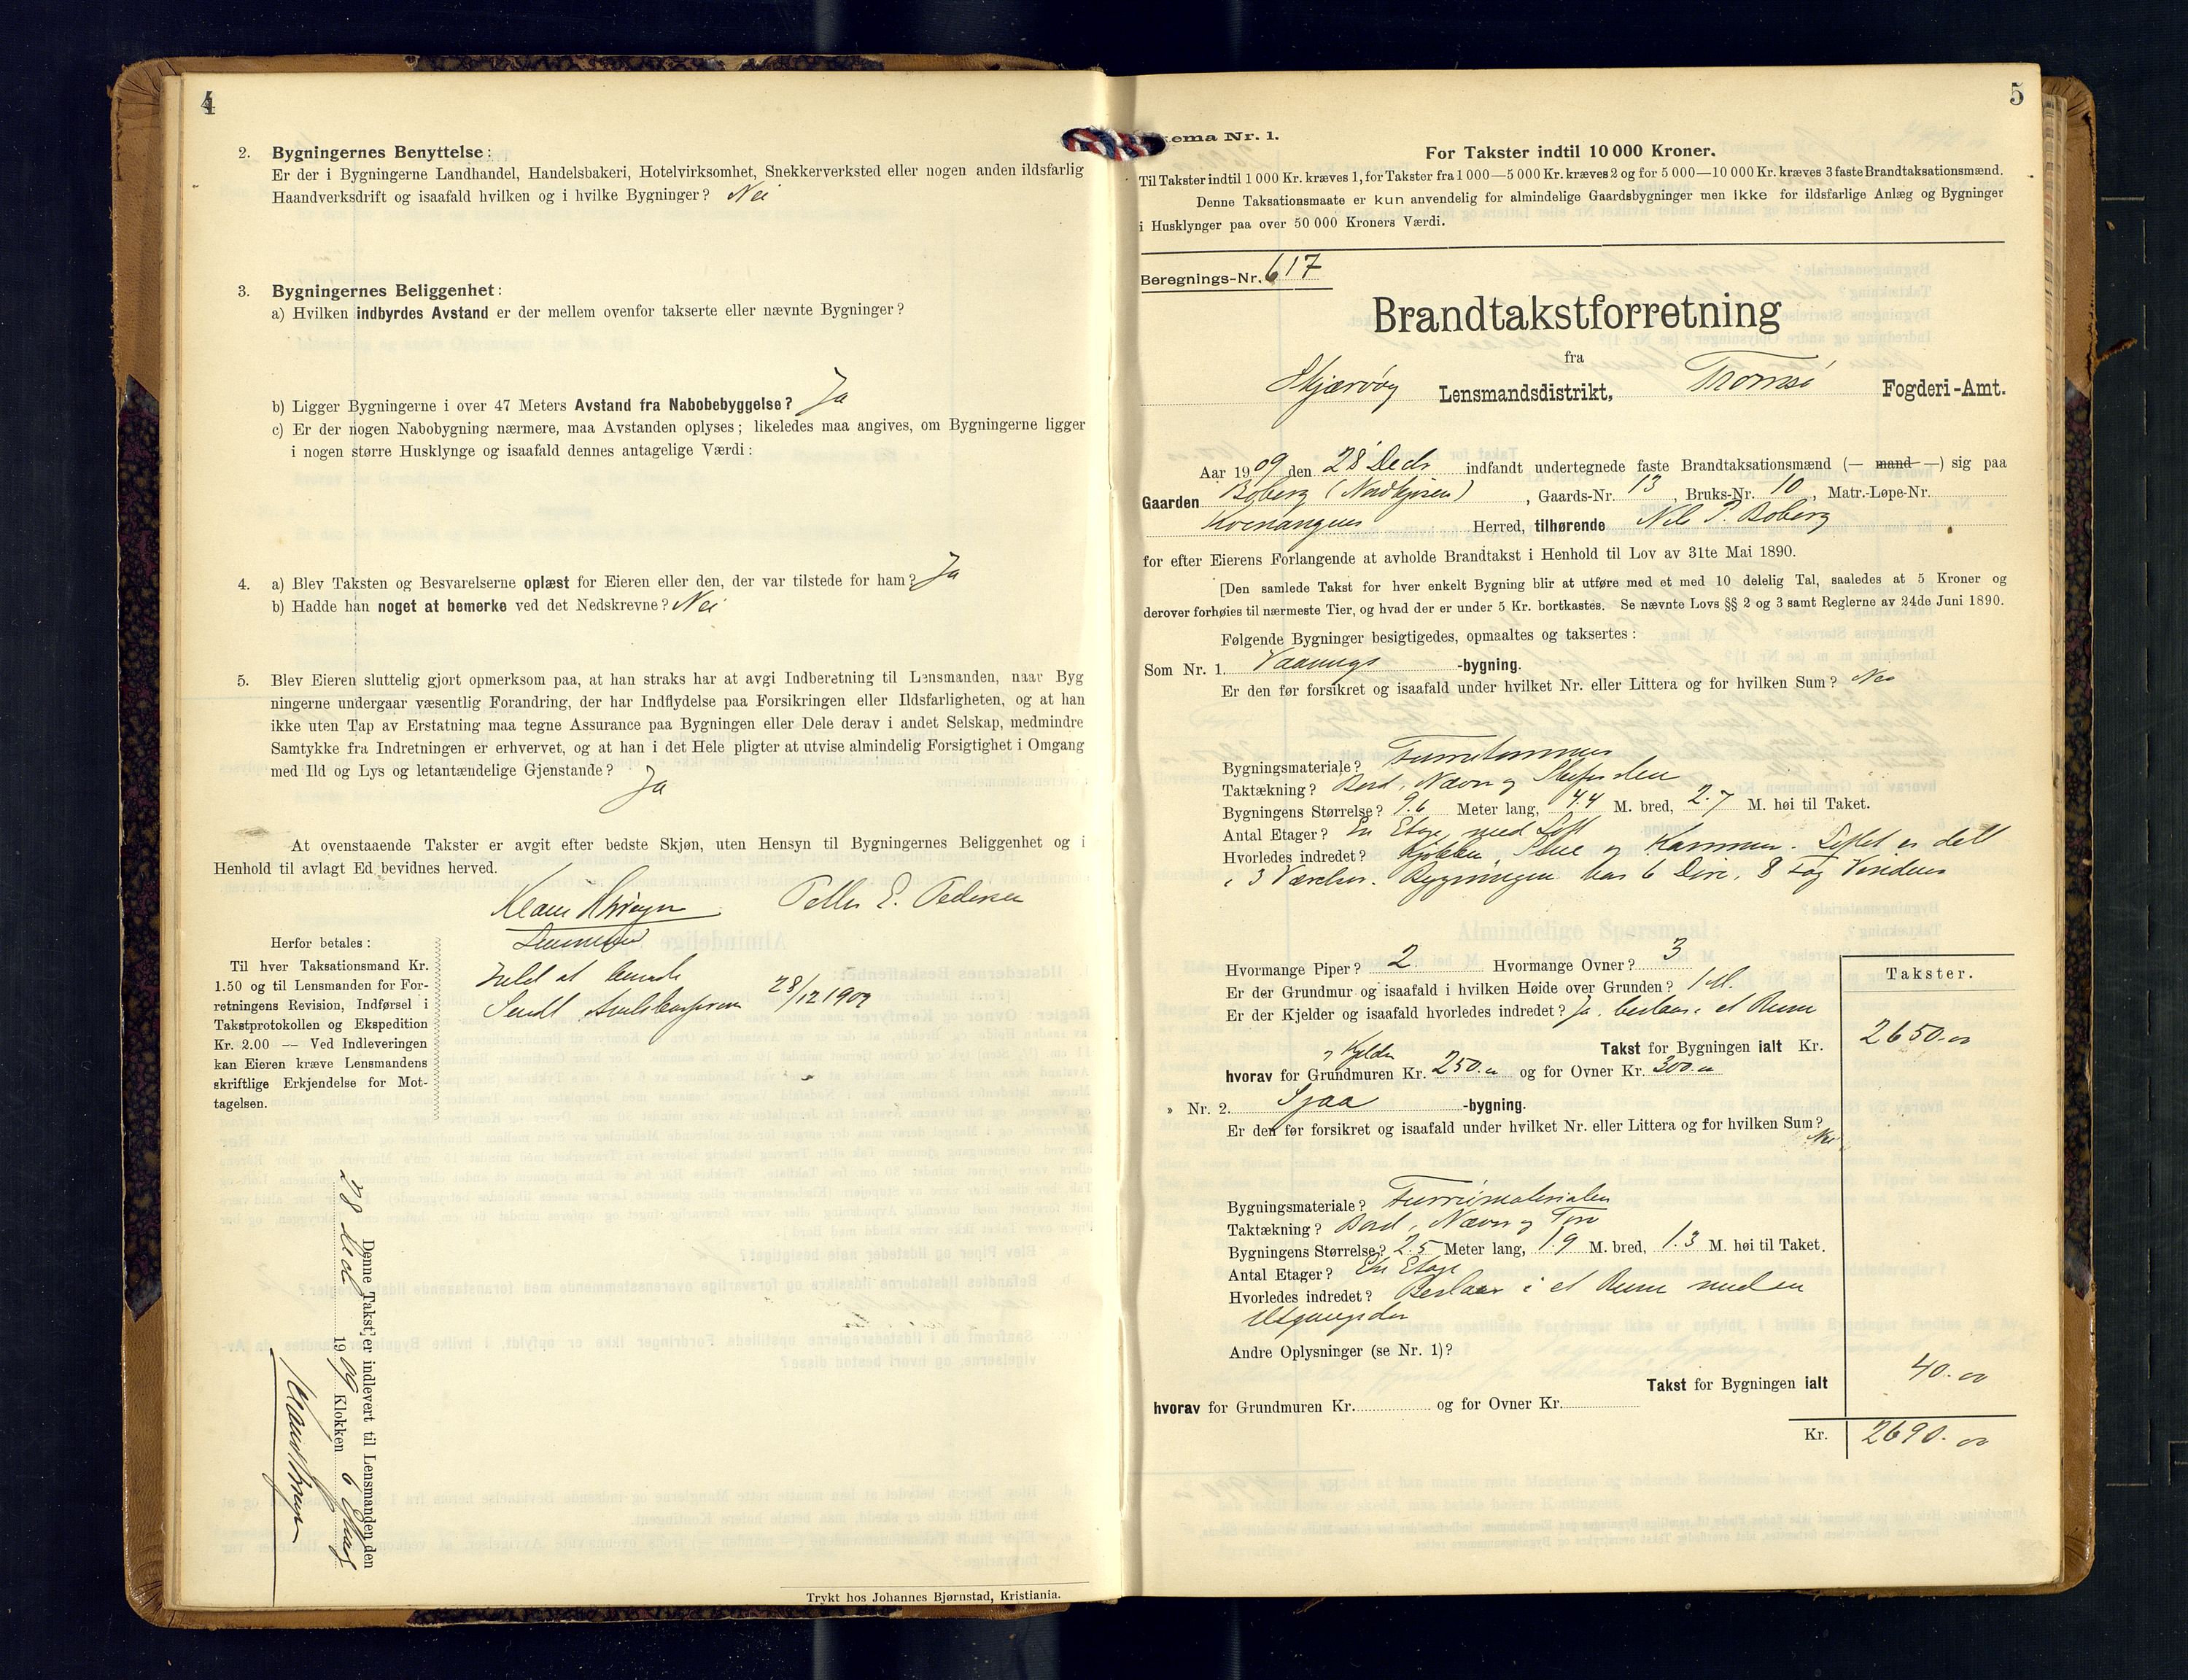 4
2. Bygningernes Benyttelse:
Er der i Bygningerne Landhandel, Handelsbakeri, Hotelvirksomhet, Snekkerverksted eller nogen anden ildsfarlig
Haandverksdrift og isaafald hvilken og i hvilke Bygninger? Nei
3. Bygningernes Beliggenhet:
a) Hvilken indbyrdes Avstand er der mellem ovenfor takserte eller nævnte Bygninger?
b) Ligger Bygningerne i over 47 Meters Avstand fra Nabobebyggelse? Ja
c) Er der nogen Nabobygning nærmere, maa Avstanden oplyses; likeledes maa angives, om Bygningerne ligger
i nogen større Husklynge og isaafald dennes antagelige Værdi:
4. a) Blev Taksten og Besvarelserne oplæst for Eieren eller den, der var tilstede for ham? Ja
b) Hadde han noget at bemerke ved det Nedskrevne? Nei
5. Blev Eieren sluttelig gjort opmerksom paa, at han straks har at avgi Indberetning til Lensmanden, naar Byg
ningerne undergaar væsentlig Forandring, der har Indflydelse paa Forsikringen eller Ildsfarligheten, og at han
ikke uten Tap av Erstatning maa tegne Assurance paa Bygningen eller Dele derav i andet Selskap, medmindre
Samtykke fra Indretningen er erhvervet, og at han i det Hele pligter at utvise almindelig Forsigtighet i Omgang
med Ild og Lys og letantændelige Gjenstande? Ja
At ovenstaaende Takster er avgit efter bedste Skjøn, uten Hensyn til Bygningernes Beliggenhet og i
Henhold til avlagt Ed bevidnes herved.
Peder E. Pedersen
Herfor betales:
Til hver Taksationsmand Kr.
1.50 og til Lensmanden for For-
retningens Revision, Indførsel i
Takstprotokollen og Ekspedition
Kr. 2.00 — Ved Indleveringen
kan Eieren kræve Lensmandens
skriftlige Erkjendelse for Mot-
tagelsen.
28/12 1909
Denne Takst er indlevert til Lensmanden den
28 Decb 1909 Klokken 6
Trykt hos Johannes Bjørnstad, Kristiania.
5
ema Nr. 1.
For Takster indtil 10 000 Kroner.
Til Takster indtil 1 000 Kr. kræves 1, for Takster fra 1 000—5 000 Kr. kræves 2 og for 5 000—10 000 Kr. kræves 3 faste Brandtaksationsmænd.
Denne Taksationsmaate er kun anvendelig for almindelige Gaardsbygninger men ikke for ildsfarlige Anlæg og Bygninger
i Husklynger paa over 50 000 Kroners Værdi.
Beregnings-Nr. 617
Brandtakstforretning
fra
Skjærvøy Lensmandsdistrikt, Tromsø Fogderi-Amt.
Aar 1909 den 28 Decb indfandt undertegnede faste Brandtaksationsmænd (— mand —) sig paa
Gaarden Boberg (Nordkjosen), Gaards-Nr. 13, Bruks-Nr. 10, Matr.-Løpe-Nr.
Kvænangen Herred, tilhørende Nils P. Boberg
for efter Eierens Forlangende at avholde Brandtakst i Henhold til Lov av 31te Mai 1890.
[Den samlede Takst for hver enkelt Bygning blir at utføre med et med 10 delelig Tal, saaledes at 5 Kroner og
derover forhøies til nærmeste Tier, og hvad der er under 5 Kr. bortkastes. Se nævnte Lovs §§ 2 og 3 samt Reglerne av 24de Juni 1890.
Følgende Bygninger besigtigedes, opmaaltes og taksertes:
Som Nr. 1. Vaanings -bygning.
Er den før forsikret og isaafald under hvilket Nr. eller Littera og for hvilken Sum? Nei
Bygningsmateriale? Furutømmer
Taktækning? Bord, Næver og Skifersten
Bygningens Størrelse? 9.6 Meter lang, 4.4 M. bred, 2.7 M. høi til Taket.
Antal Etager? En Etage med Loft
Hvorledes indredet? Kjøkken, Stue og Kammer. Loftet er delt
i 3 Værelser. Bygningen har 6 Døre, 8 Fag Vinduer
Hvormange Piper? 2 Hvormange Ovner? 3
Er der Grundmur og isaafald i hvilken Høide over Grunden? 1 M.
Er der Kjelder og isaafald hvorledes indredet? Ja, bestaar i et Rum
Takster.
Takst for Bygningen ialt Kr. 2650.00
og Kjelder
hvorav for Grundmuren Kr. 250.00 og for Ovner Kr. 300.00
» Nr. 2. Sjaa -bygning.
Er den før forsikret og isaafald under hvilket Nr. eller Littera og for hvilken Sum?
Nei
Bygningsmateriale? Furumaterialer
Taktækning? Bord, Næver og Torv
Bygningens Størrelse? 2.5 Meter lang, 1.9 M. bred, 1.3 M. høi til Taket.
Antal Etager? En Etage
Hvorledes indredet? Bestaar i et Rum med en
Utgangsdør
Andre Oplysninger (se Nr. 1)?
Takst for Bygningen ialt 40.00
hvorav for Grundmuren Kr. og for Ovner Kr.
Kr. 2690.00